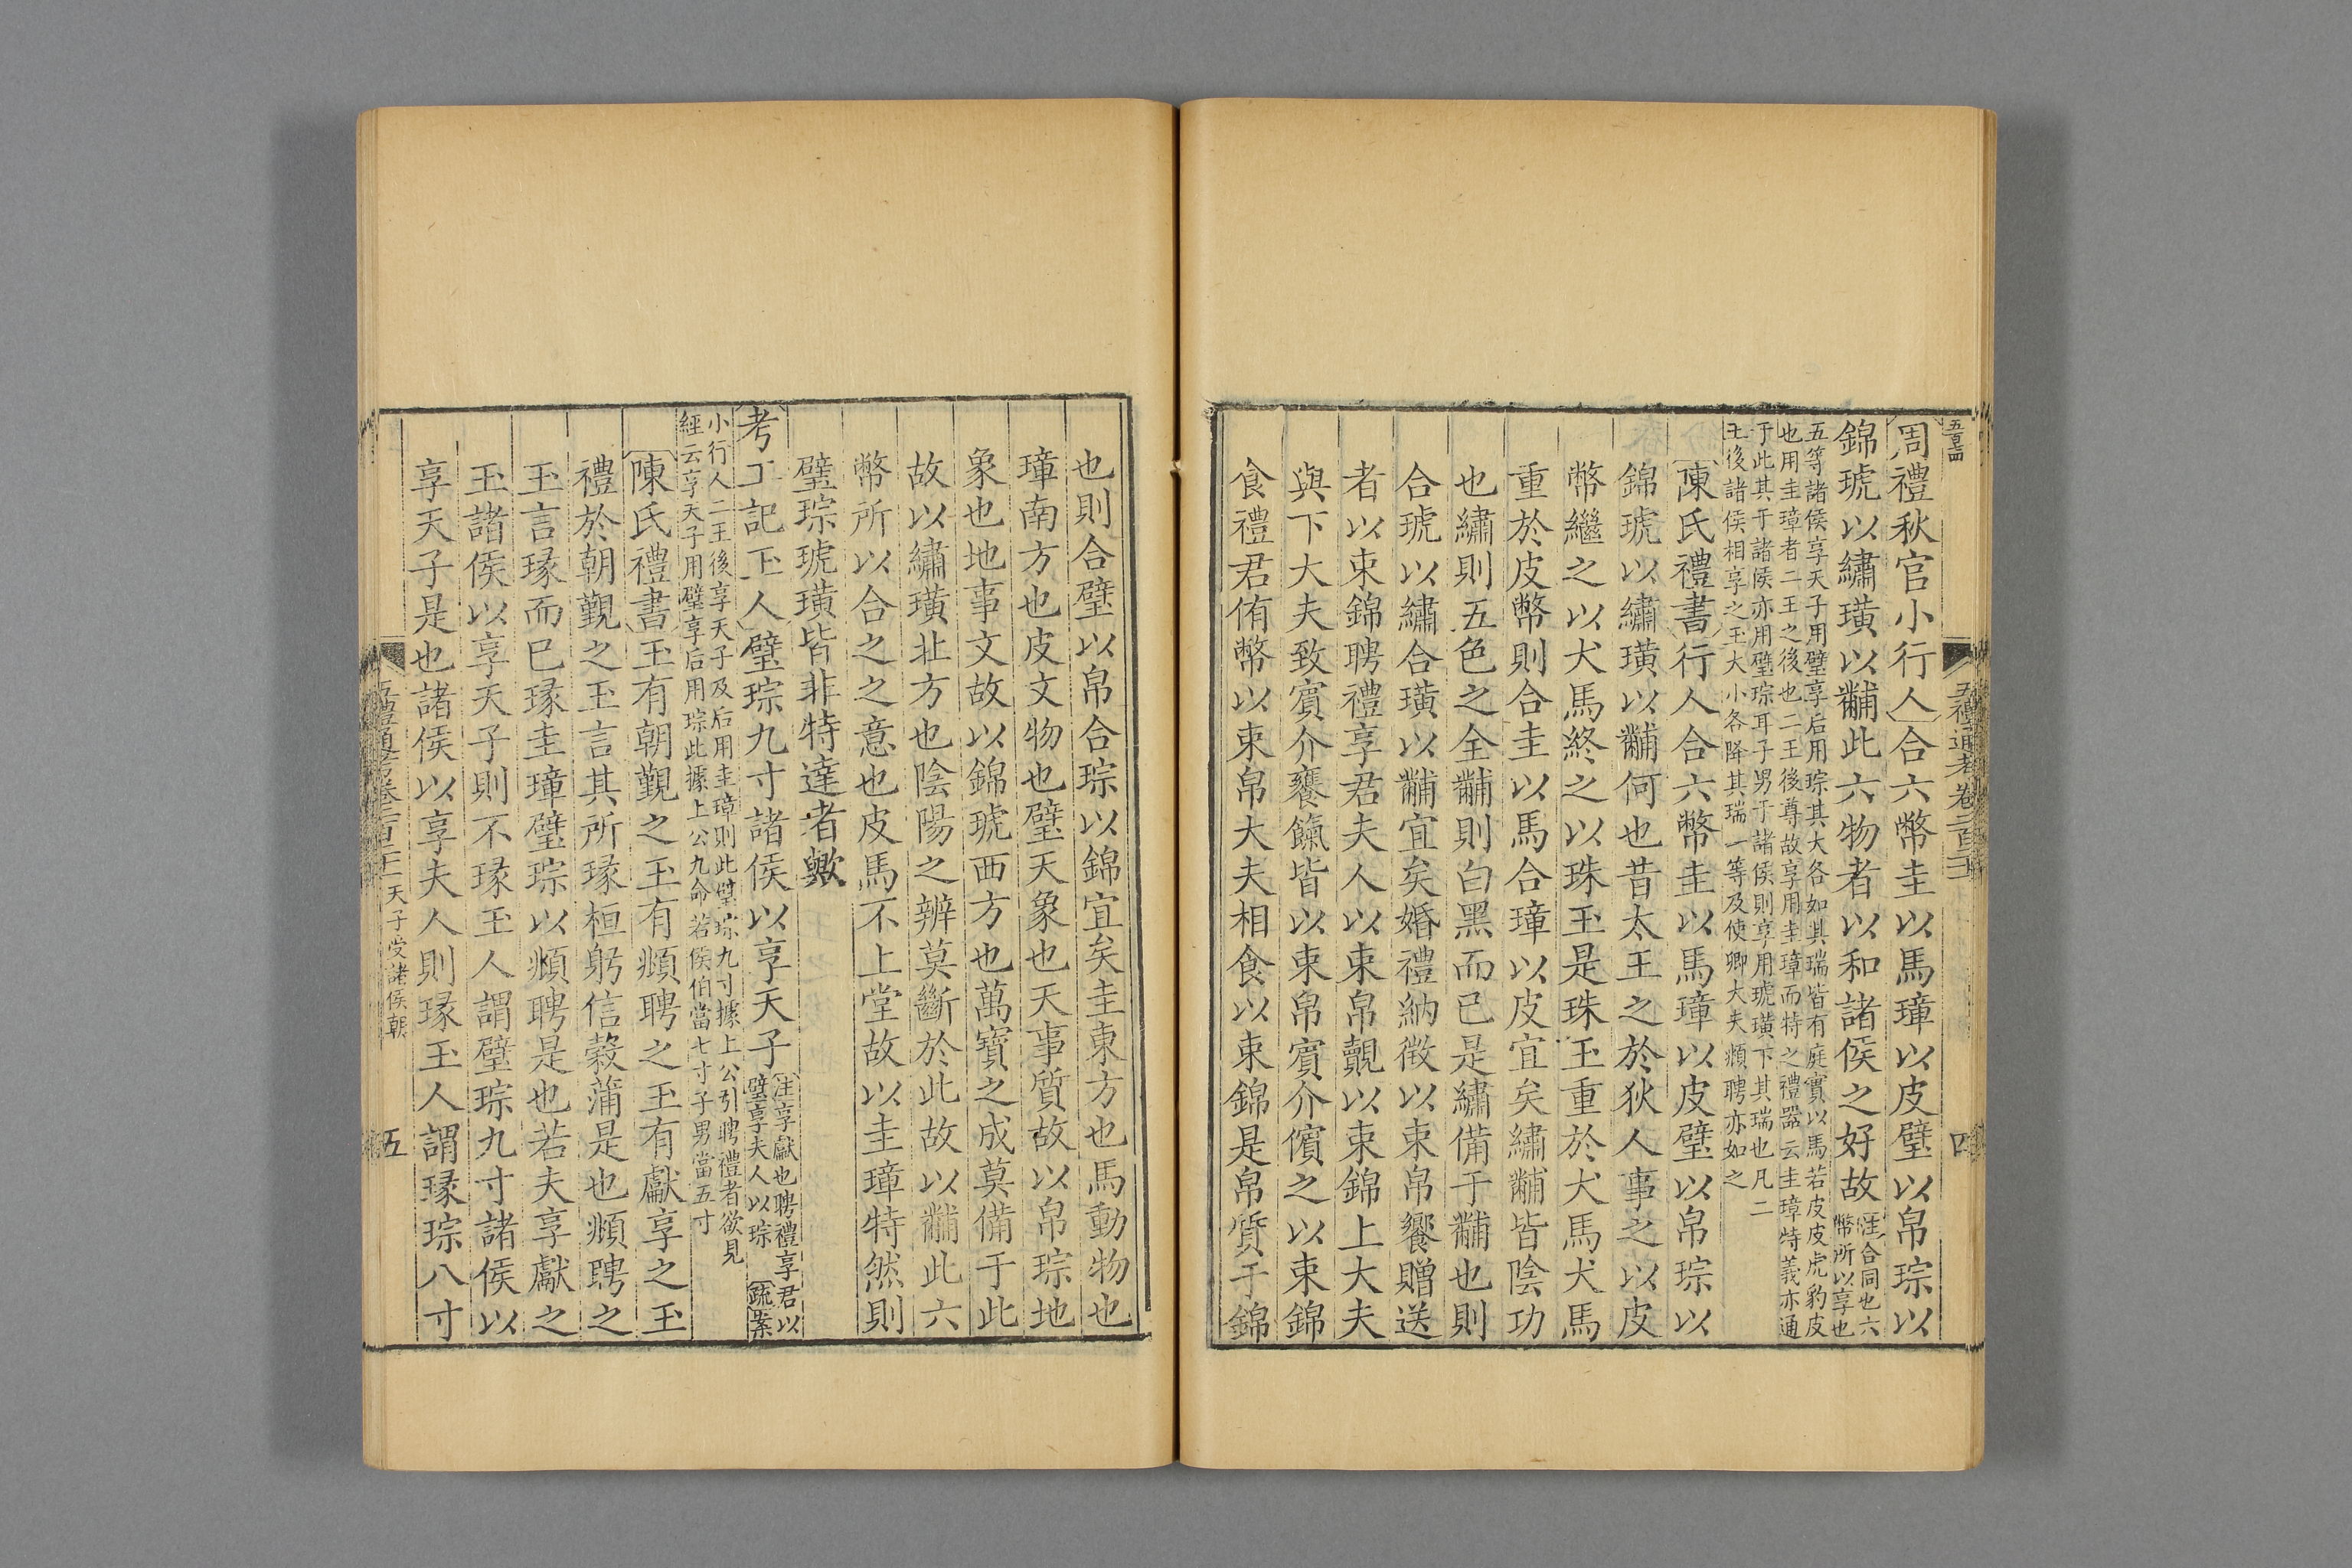 五百四
五禮通考卷二百二十
四
周禮秋官小行人合六幣圭以馬璋以皮璧以帛琮以
錦琥以繡璜以黼此六物者以和諸侯之好故注合同也六
幣所以享也
五等諸侯享天子用璧享后用琮其大各如其瑞皆有庭實以馬若皮皮虎豹皮
也用圭璋者二王之後也二王後尊故享用圭璋而特之禮器云圭璋特義亦通
于此其于諸侯亦用璧琮耳子男于諸侯則享用琥璜下其瑞也凡二
王後諸侯相享之玉大小各降其瑞一等及使卿大夫覜聘亦如之
陳氏禮書行人合六幣圭以馬璋以皮璧以帛琮以
錦琥以繡璜以黼何也昔太王之於狄人事之以皮
幣繼之以犬馬終之以珠玉是珠玉重於犬馬犬馬
重於皮幣則合圭以馬合璋以皮宜矣繡黼皆陰功
也繡則五色之全黼則白黑而已是繡備于黼也則
合琥以繡合璜以黼宜矣婚禮納徵以束帛饗贈送
者以束錦聘禮享君夫人以束帛覿以束錦上大夫
與下大夫致賓介饔餼皆以束帛賓介儐之以束錦
食禮君侑幣以束帛大夫相食以束錦是帛質于錦
也則合璧以帛合琮以錦宜矣圭東方也馬動物也
璋南方也皮文物也璧天象也天事質故以帛琮地
象也地事文故以錦琥西方也萬寶之成莫備于此
故以繡璜北方也陰陽之辨莫斷於此故以黼此六
幣所以合之之意也皮馬不上堂故以圭璋特然則
璧琮琥璜皆非特達者歟
考工記玉人璧琮九寸諸侯以享天子注享獻也聘禮享君以
璧享夫人以琮 疏案
小行人二王後享天子及后用圭璋則此璧琮九寸據上公引聘禮者欲見
經云享天子用璧享后用琮此據上公九命若侯伯當七寸子男當五寸
陳氏禮書玉有朝覲之玉有覜聘之玉有獻享之玉
禮於朝覲之玉言其所瑑桓躬信穀蒲是也覜聘之
玉言瑑而已瑑圭璋璧琮以覜聘是也若夫享獻之
玉諸侯以享天子則不瑑玉人謂璧琮九寸諸侯以
享天子是也諸侯以享夫人則瑑玉人謂瑑琮八寸
五禮通考卷二百二十
天子受諸侯朝
五